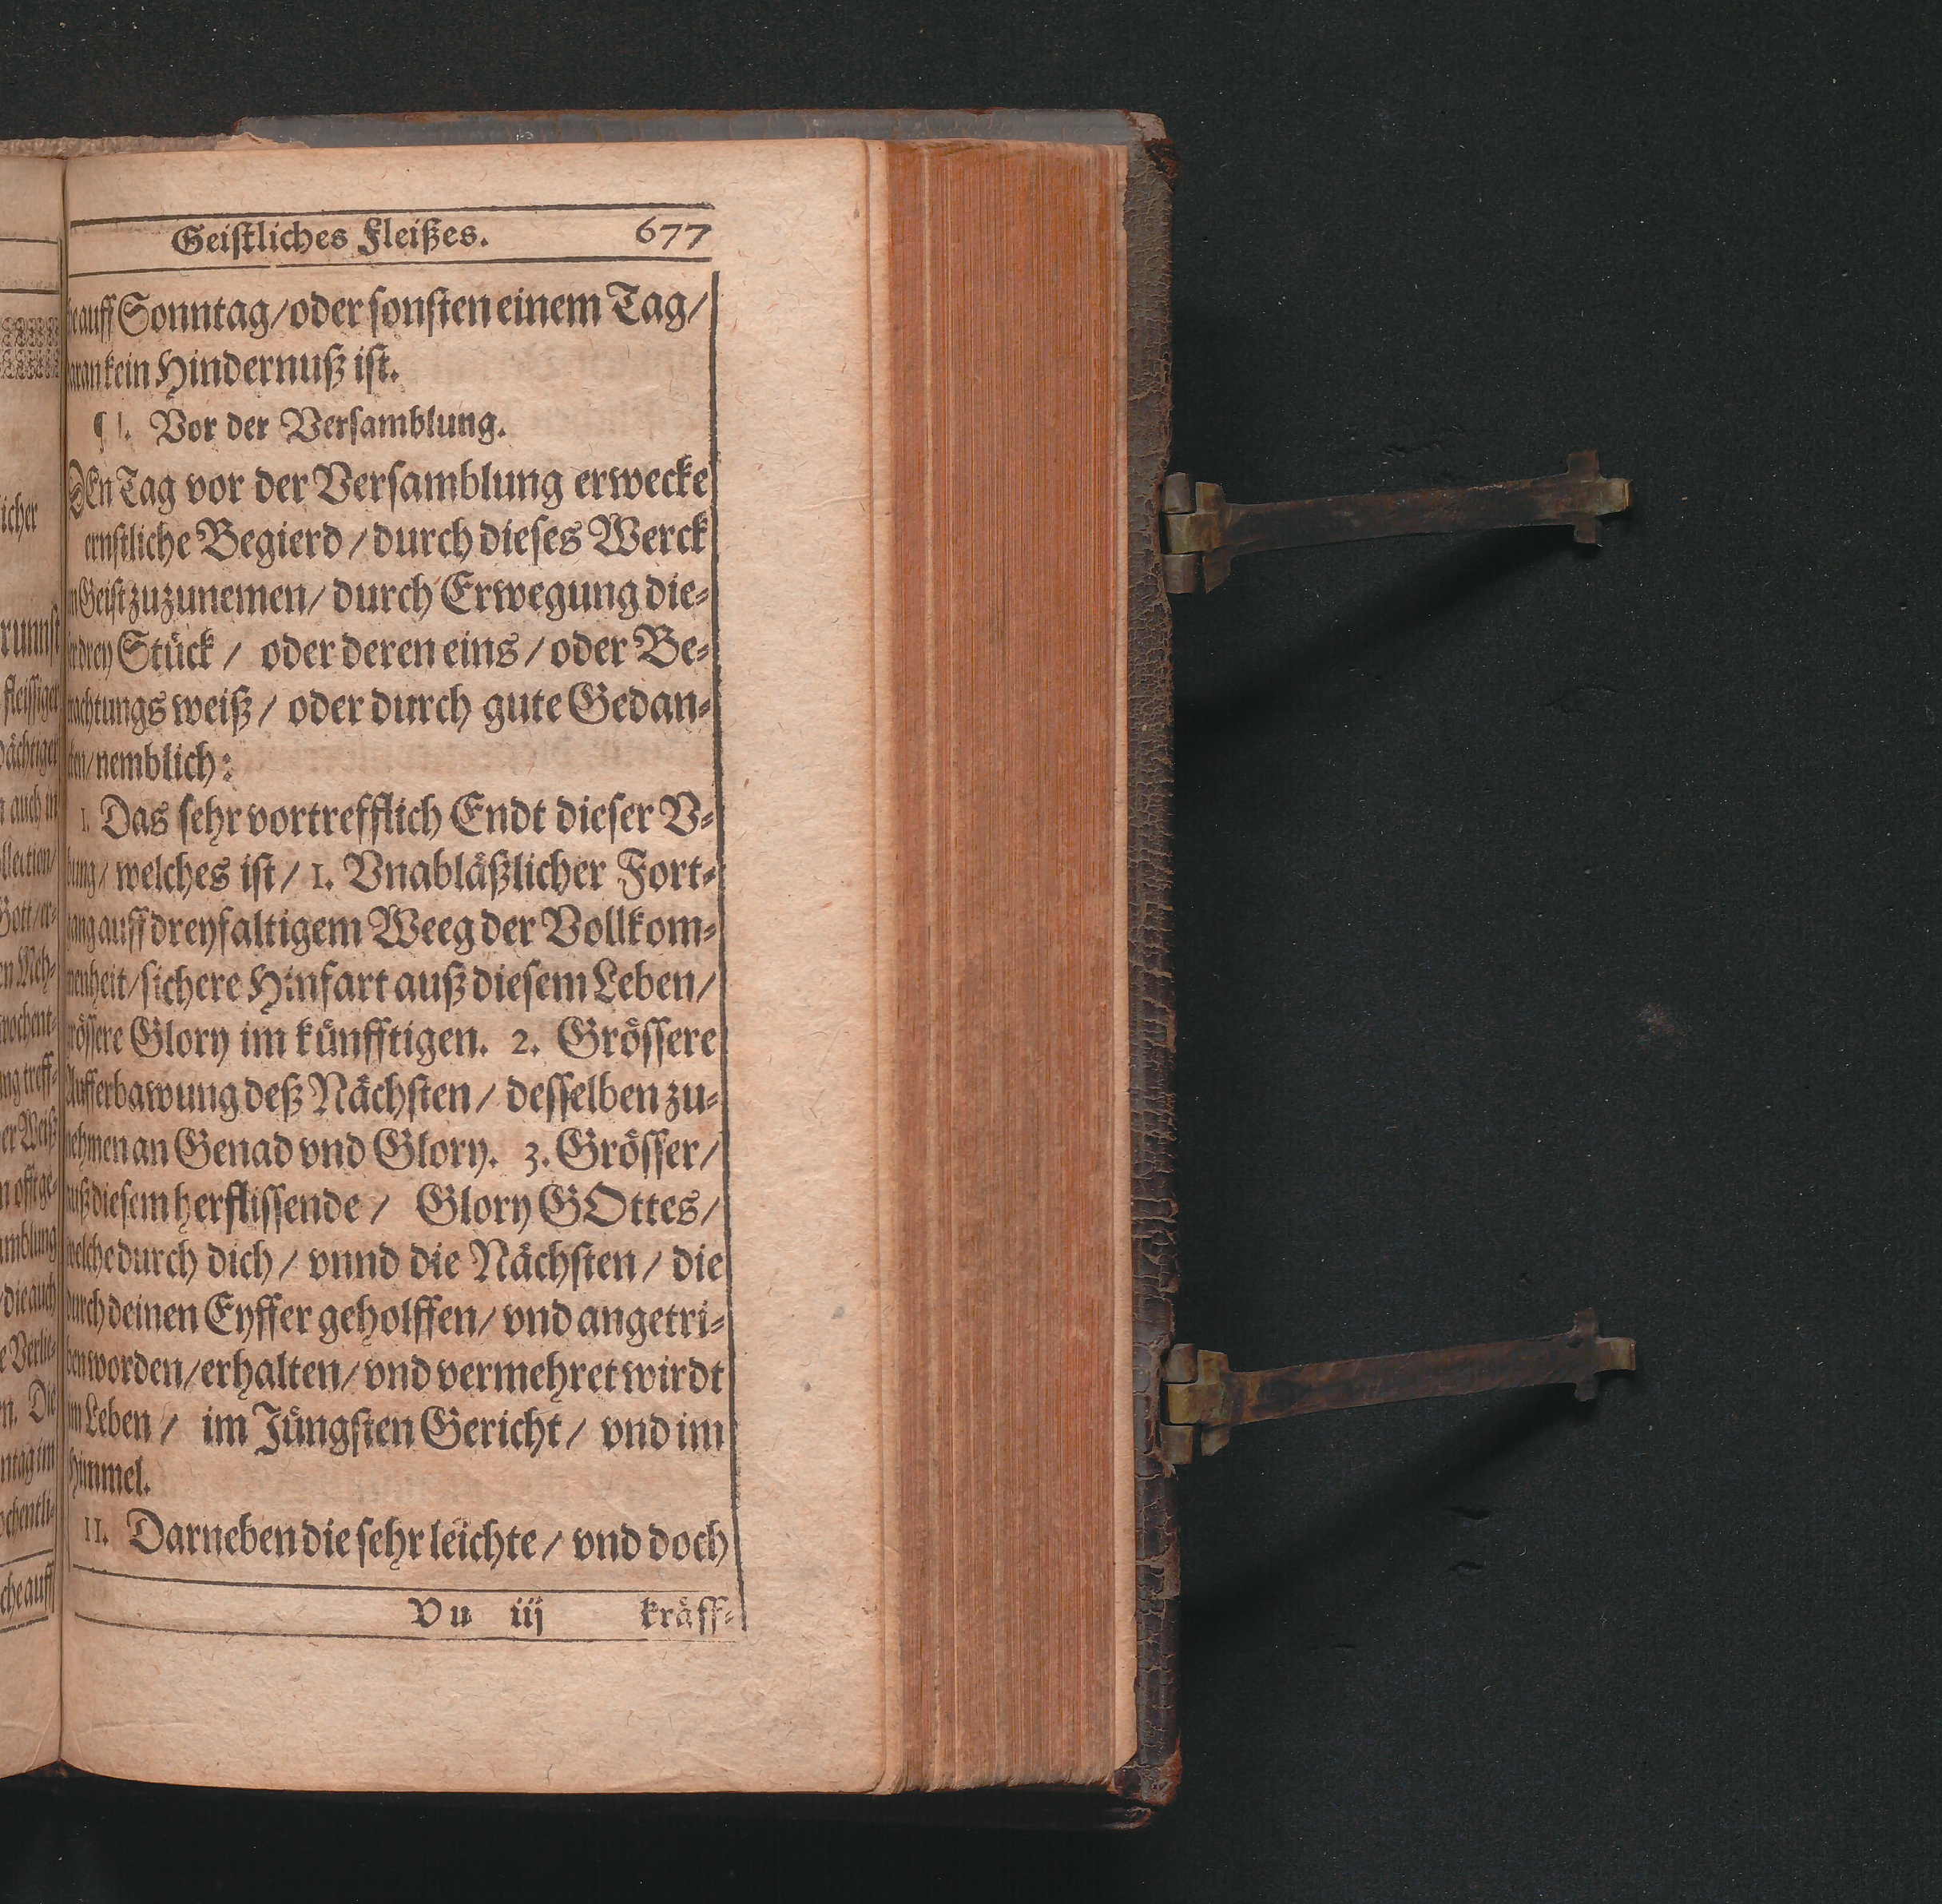 Geistliches Fleißes. 677
auff Sonntag/ oder sonsten einem Tag/
kein Hindernuß ist.
¶ I. Vor der Versamblung.
DEn Tag vor der Versamblung erwecke
ernstliche Begierd/ durch dieses Werck
Geist zuzunemen/ durch Erwegung die-
drey Stück/ oder deren eins/ oder Be-
trachtungs weiß/ oder durch gute Gedan-
cken/ nemblich:
I. Das sehr vortrefflich Endt dieser V-
bung/ welches ist/ 1. Vnabläßlicher Fort-
gang auff dreyfaltigem Weeg der Vollkom-
menheit/ sichere Hinfart auß diesem Leben/
grössere Glory im künfftigen. 2. Grössere
Aufferbawung deß Nächsten/ desselben zu-
nehmen an Genad vnd Glory. 3. Grösser/
auß diesem herflissende/ Glory GOttes/
welche durch dich/ vnnd die Nächsten/ die
durch deinen Eyffer geholffen/ vnd angetri-
ben worden/ erhalten/ vnd vermehret wirdt
im Leben/ im Jüngsten Gericht/ vnd im
Himmel.
II. Darneben die sehr leichte/ vnd doch
Vu iij kräff-